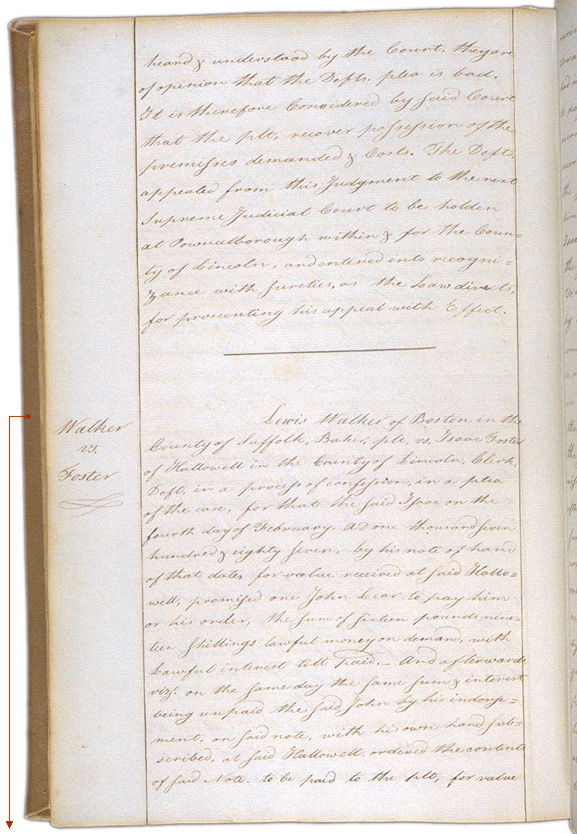 heard & understood by the Court, they are
of opinion that the Defts. plea is bad.
It is therefore Considered by said Court
that the plt, recover possession of the
premisses demanded & Costs. The Deft,
appealed from this Judgment to the next
Supreme Judicial Court to be holden
at Pownalborough within & for the Coun=
ty of Lincoln, and entered into recogni=
zance with sureties, as the Law directs,
for prosecuting his appeal with Effect.
Walker
vs.
Foster
Lewis Walker of Boston in the
County of Suffolk, Baker, plt, vs. Isaac Foster
of Hallowell in the County of Lincoln, Clerk,
Deft, in a process of confession, in a plea
of the case, for that the said Isaac on the
fourth day of February. AD one thousand seven
hundred & eighty seven, by his note of hand
of that date, for value received at said Hallo=
well, promised one John Lear to pay him
or his order, the sum of sixteen pounds nine=
teen shillings lawful money on demand, with
Lawful interest till paid.— And afterwards
vizt. on the same day the same sum & interest
being unpaid the said John by his indorse=
ment, on said note, with his own hand sub=
scribed, at said Hallowell, ordered the contents
of said Note to be paid to the plt, for value